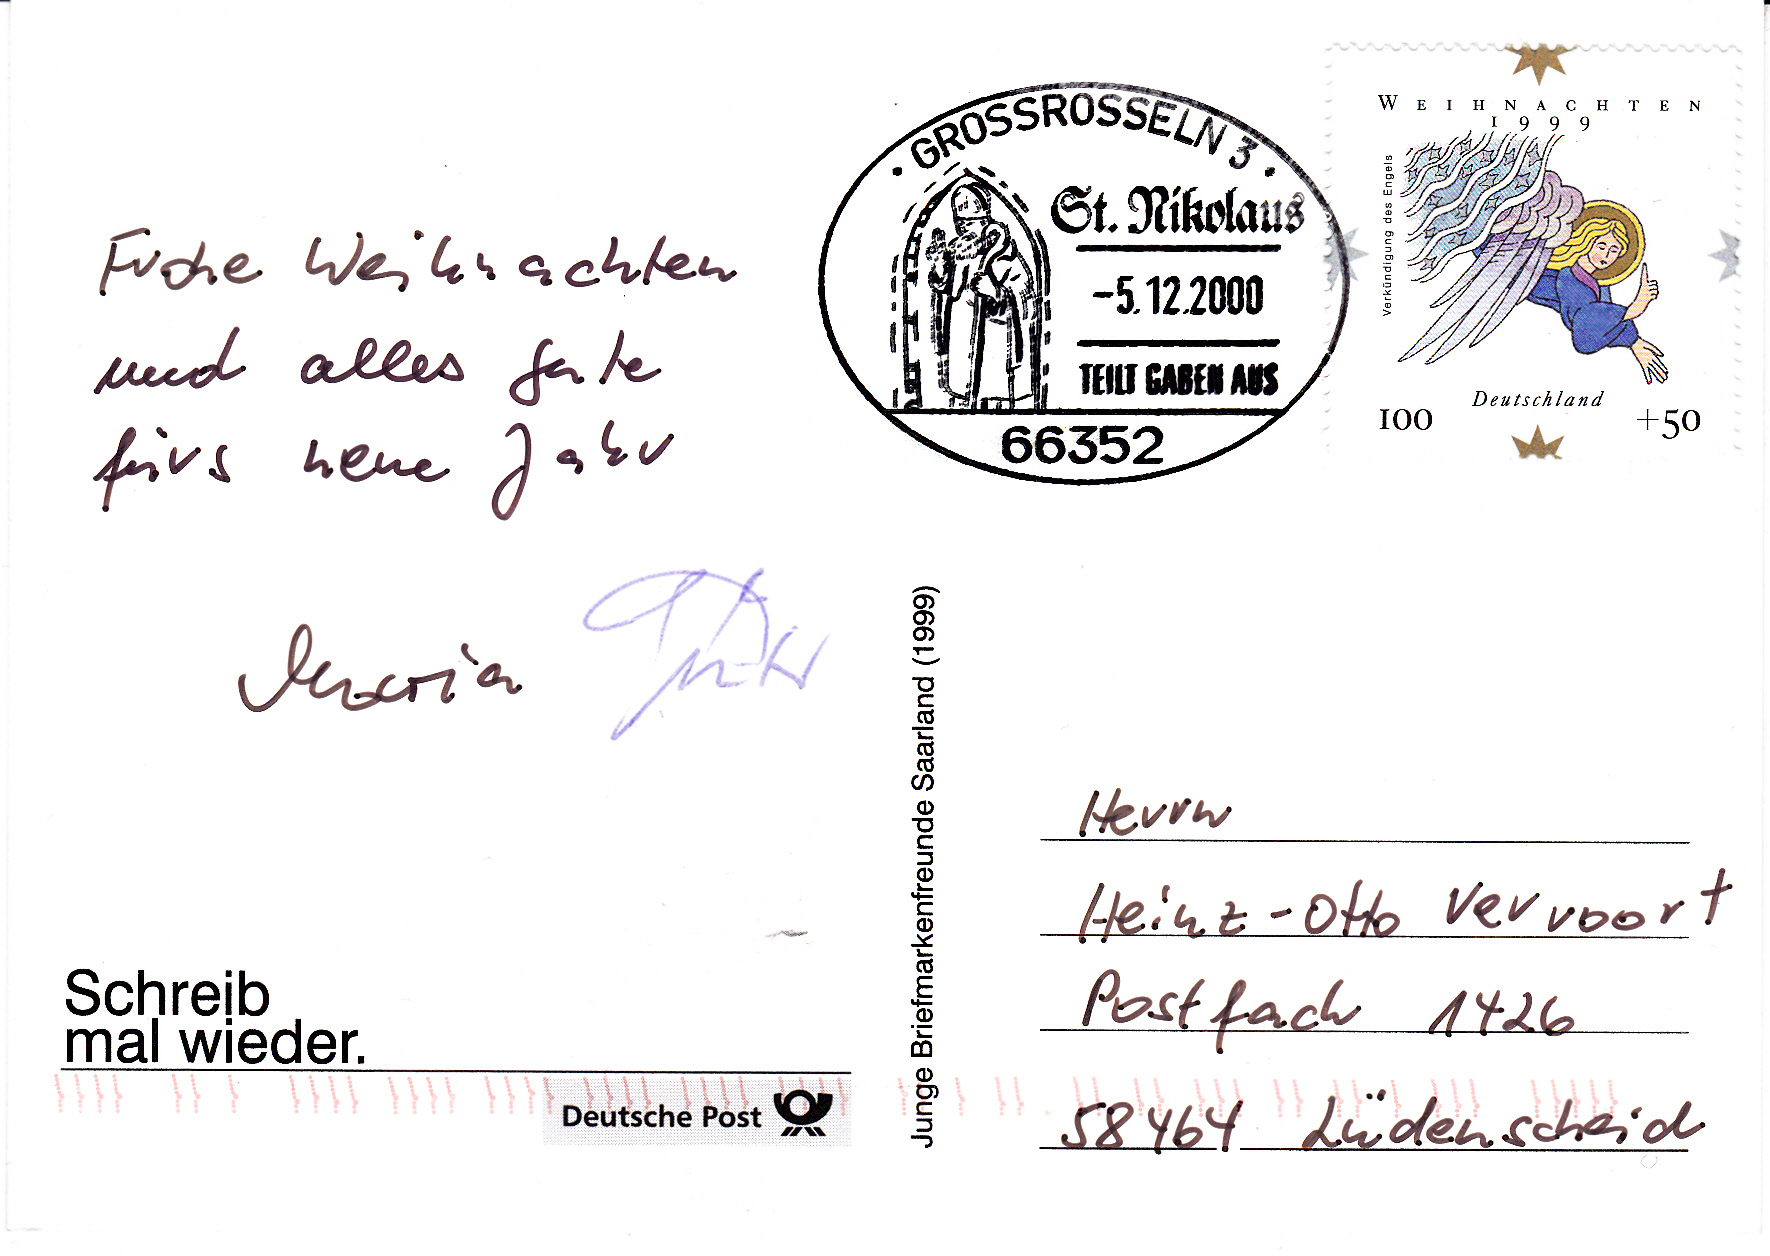 Frohe Weihnachten
und alles Gute
fürs neue Jahr
Maria
Schreib
mal wieder.
Deutsche Post
Junge Briefmarkenfreunde Saarland (1999)
· GROSSROSSELN 3 ·
St. Nikolaus
-5.12.2000
TEILT GABEN AUS
66352
WEIHNACHTEN
1999
Verkündigung des Engels
Deutschland
100 +50
Herrn
Heinz-Otto Vervoort
Postfach 1426
58464 Lüdenscheid